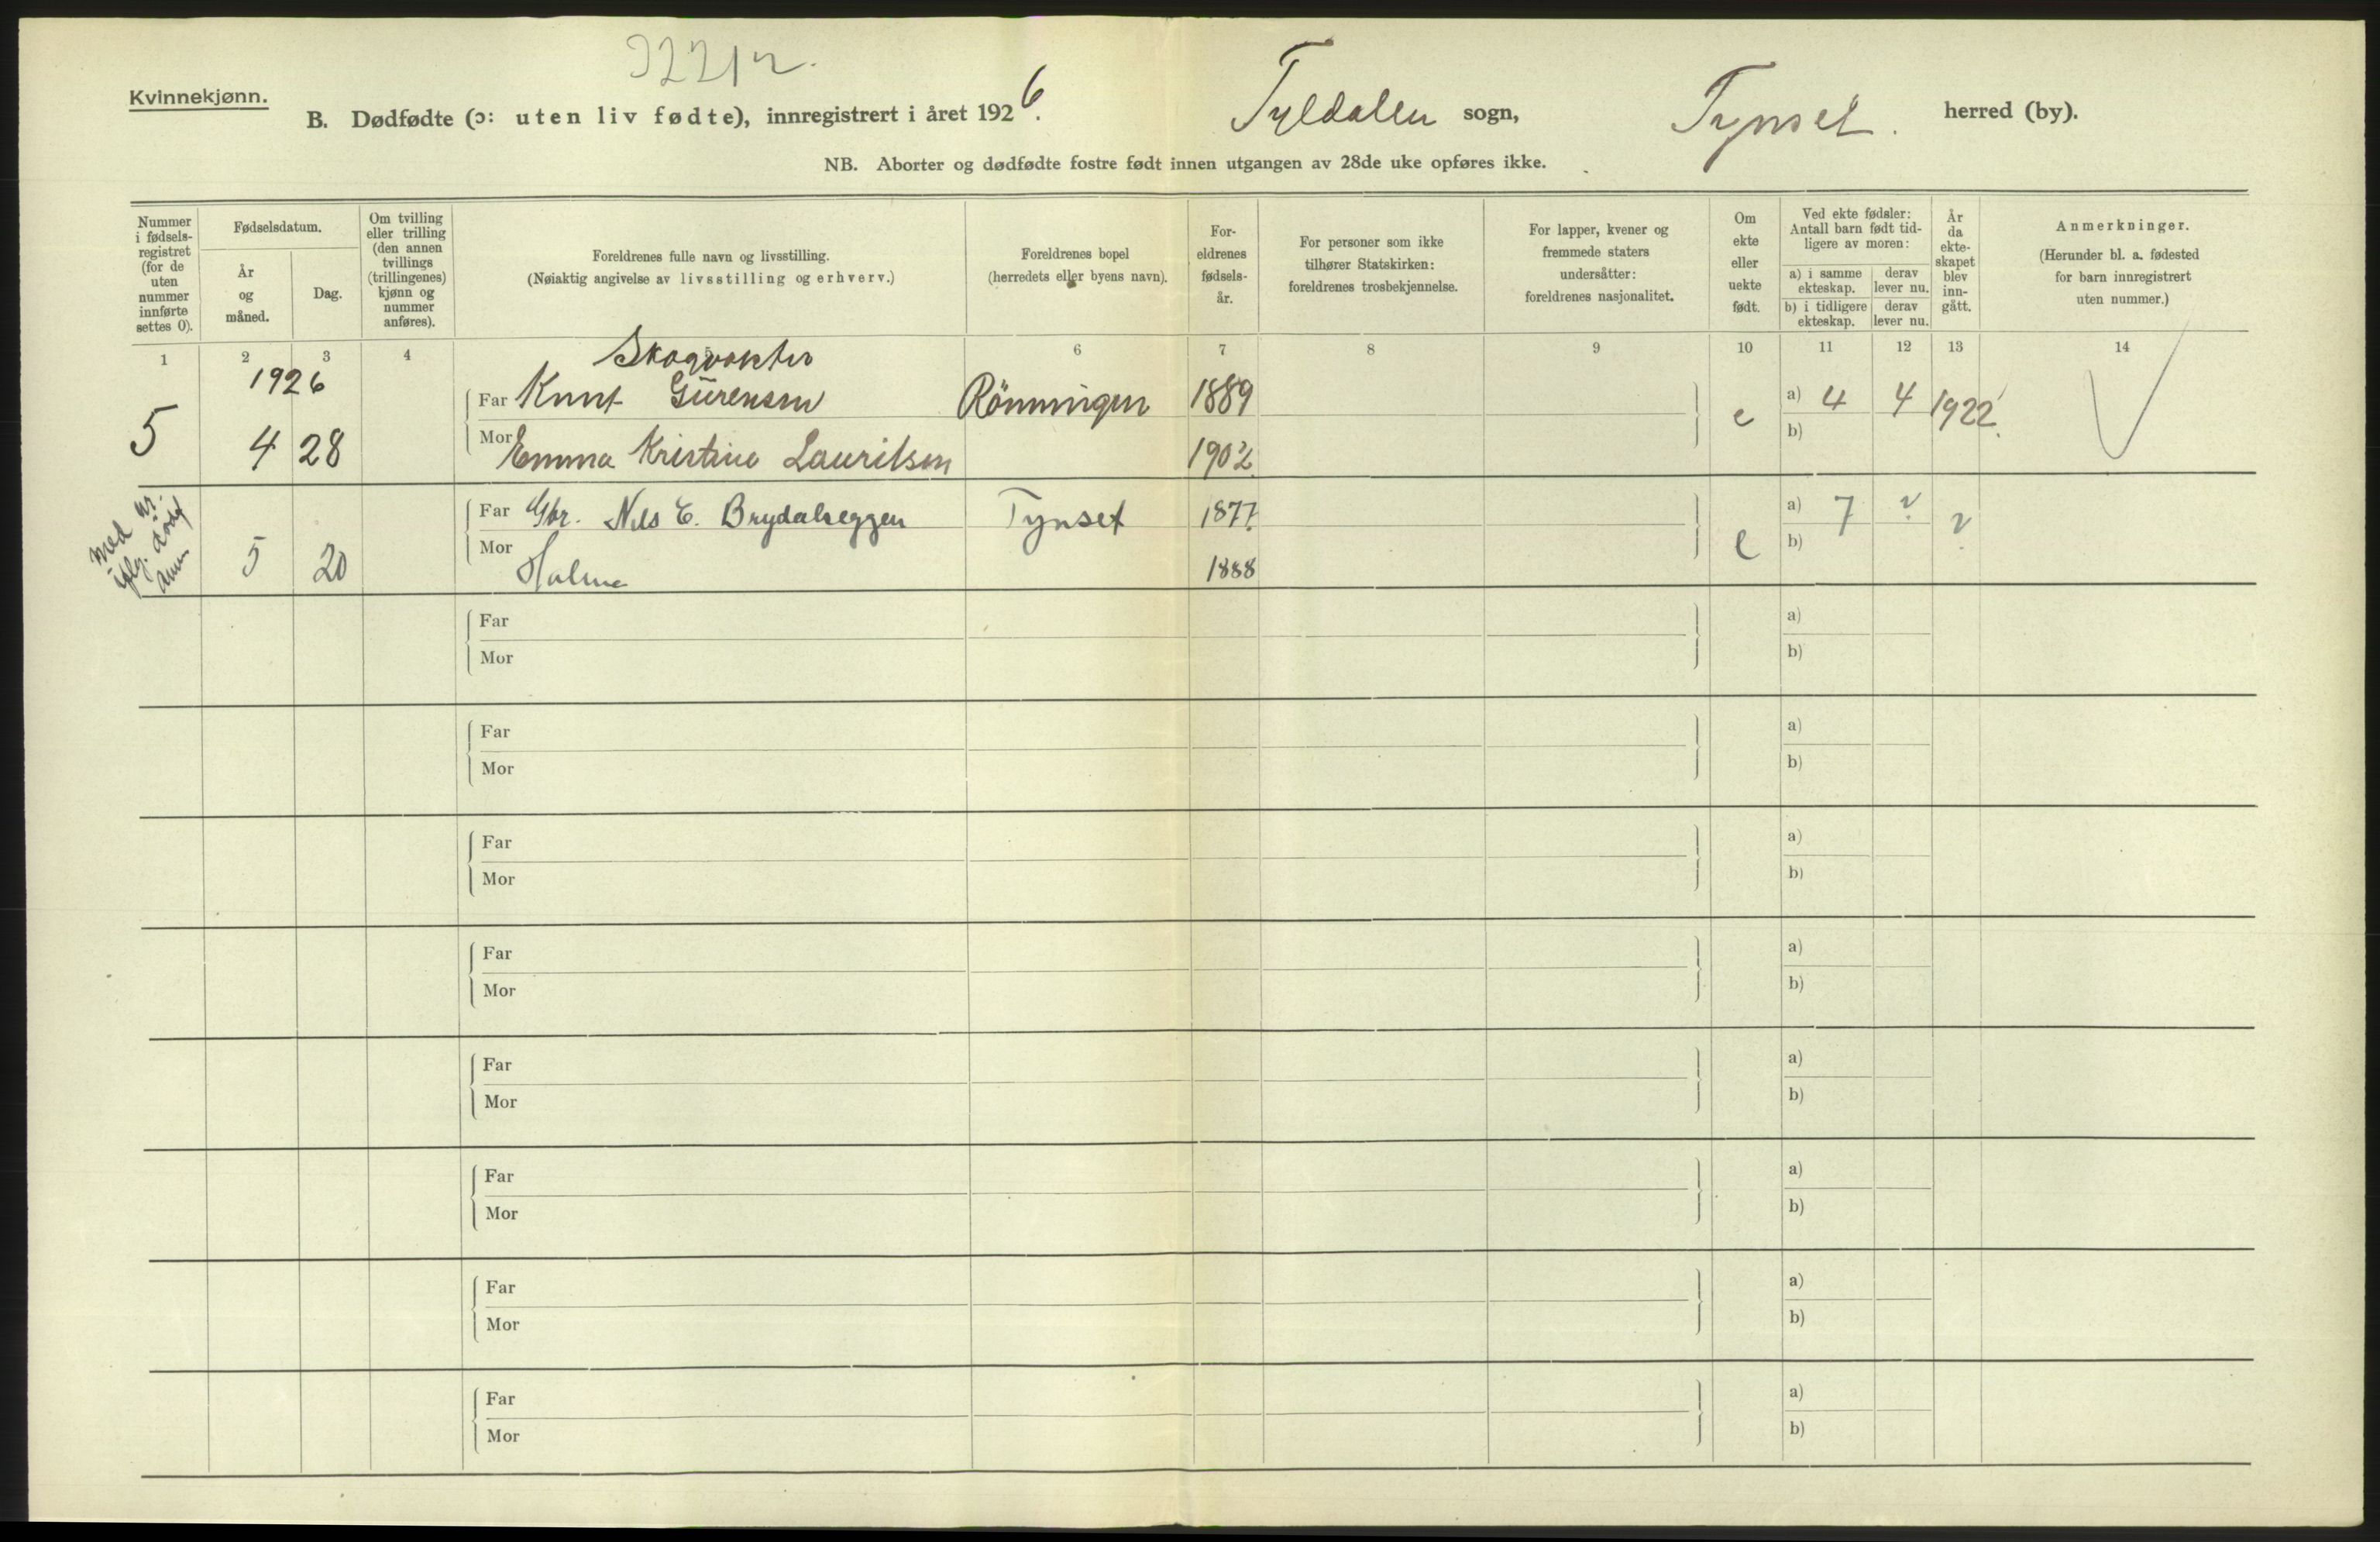 Kvinnekjønn.
B. Dødfødte (ɔ: uten liv fødte), innregistrert i året 1926.
Tyldalen sogn,
Tynset. herred (by).
NB. Aborter og dødfødte fostre født innen utgangen av 28de uke opføres ikke.
Nummer
i fødsels-
registret
(for de
uten
nummer
innførte
settes 0).
Fødselsdatum.
År
og
måned.
Dag.
Om tvilling
eller trilling
(den annen
tvillings
(trillingenes)
kjønn og
nummer
anføres).
Foreldrenes fulle navn og livsstilling.
(Nøiaktig angivelse av livsstilling og erhverv.)
Foreldrenes bopel
(herredets eller byens navn).
For-
eldrenes
fødsels-
år.
For personer som ikke
tilhører Statskirken:
foreldrenes trosbekjennelse.
For lapper, kvener og
fremmede staters
undersåtter:
foreldrenes nasjonalitet.
Om
ekte
eller
uekte
født.
Ved ekte fødsler:
Antall barn født tid-
ligere av moren:
a) i samme
ekteskap.
derav
lever nu.
b) i tidligere
ekteskap.
derav
lever nu.
År
da
ekte-
skapet
blev
inn-
gått.
Anmerkninger.
(Herunder bl. a. fødested
for barn innregistrert
uten nummer.)
1 2 3 4 6 7 8 9 10 11 12 13 14
1926
Skogvokter
5 4 28
Far Knut Rönningen 1889
Mor Emma Kristine Lauritsen 1902
e a) 4 4 1922
b)
med nr.
5 20
Far Gbr. Nils E. Brydalseggen Tynset 1877
Mor Halma 1888
e a) 7 ? ?
b)
Far a)
Mor b)
Far a)
Mor b)
Far a)
Mor b)
Far a)
Mor b)
Far a)
Mor b)
Far a)
Mor b)
Far a)
Mor b)
Far a)
Mor b)